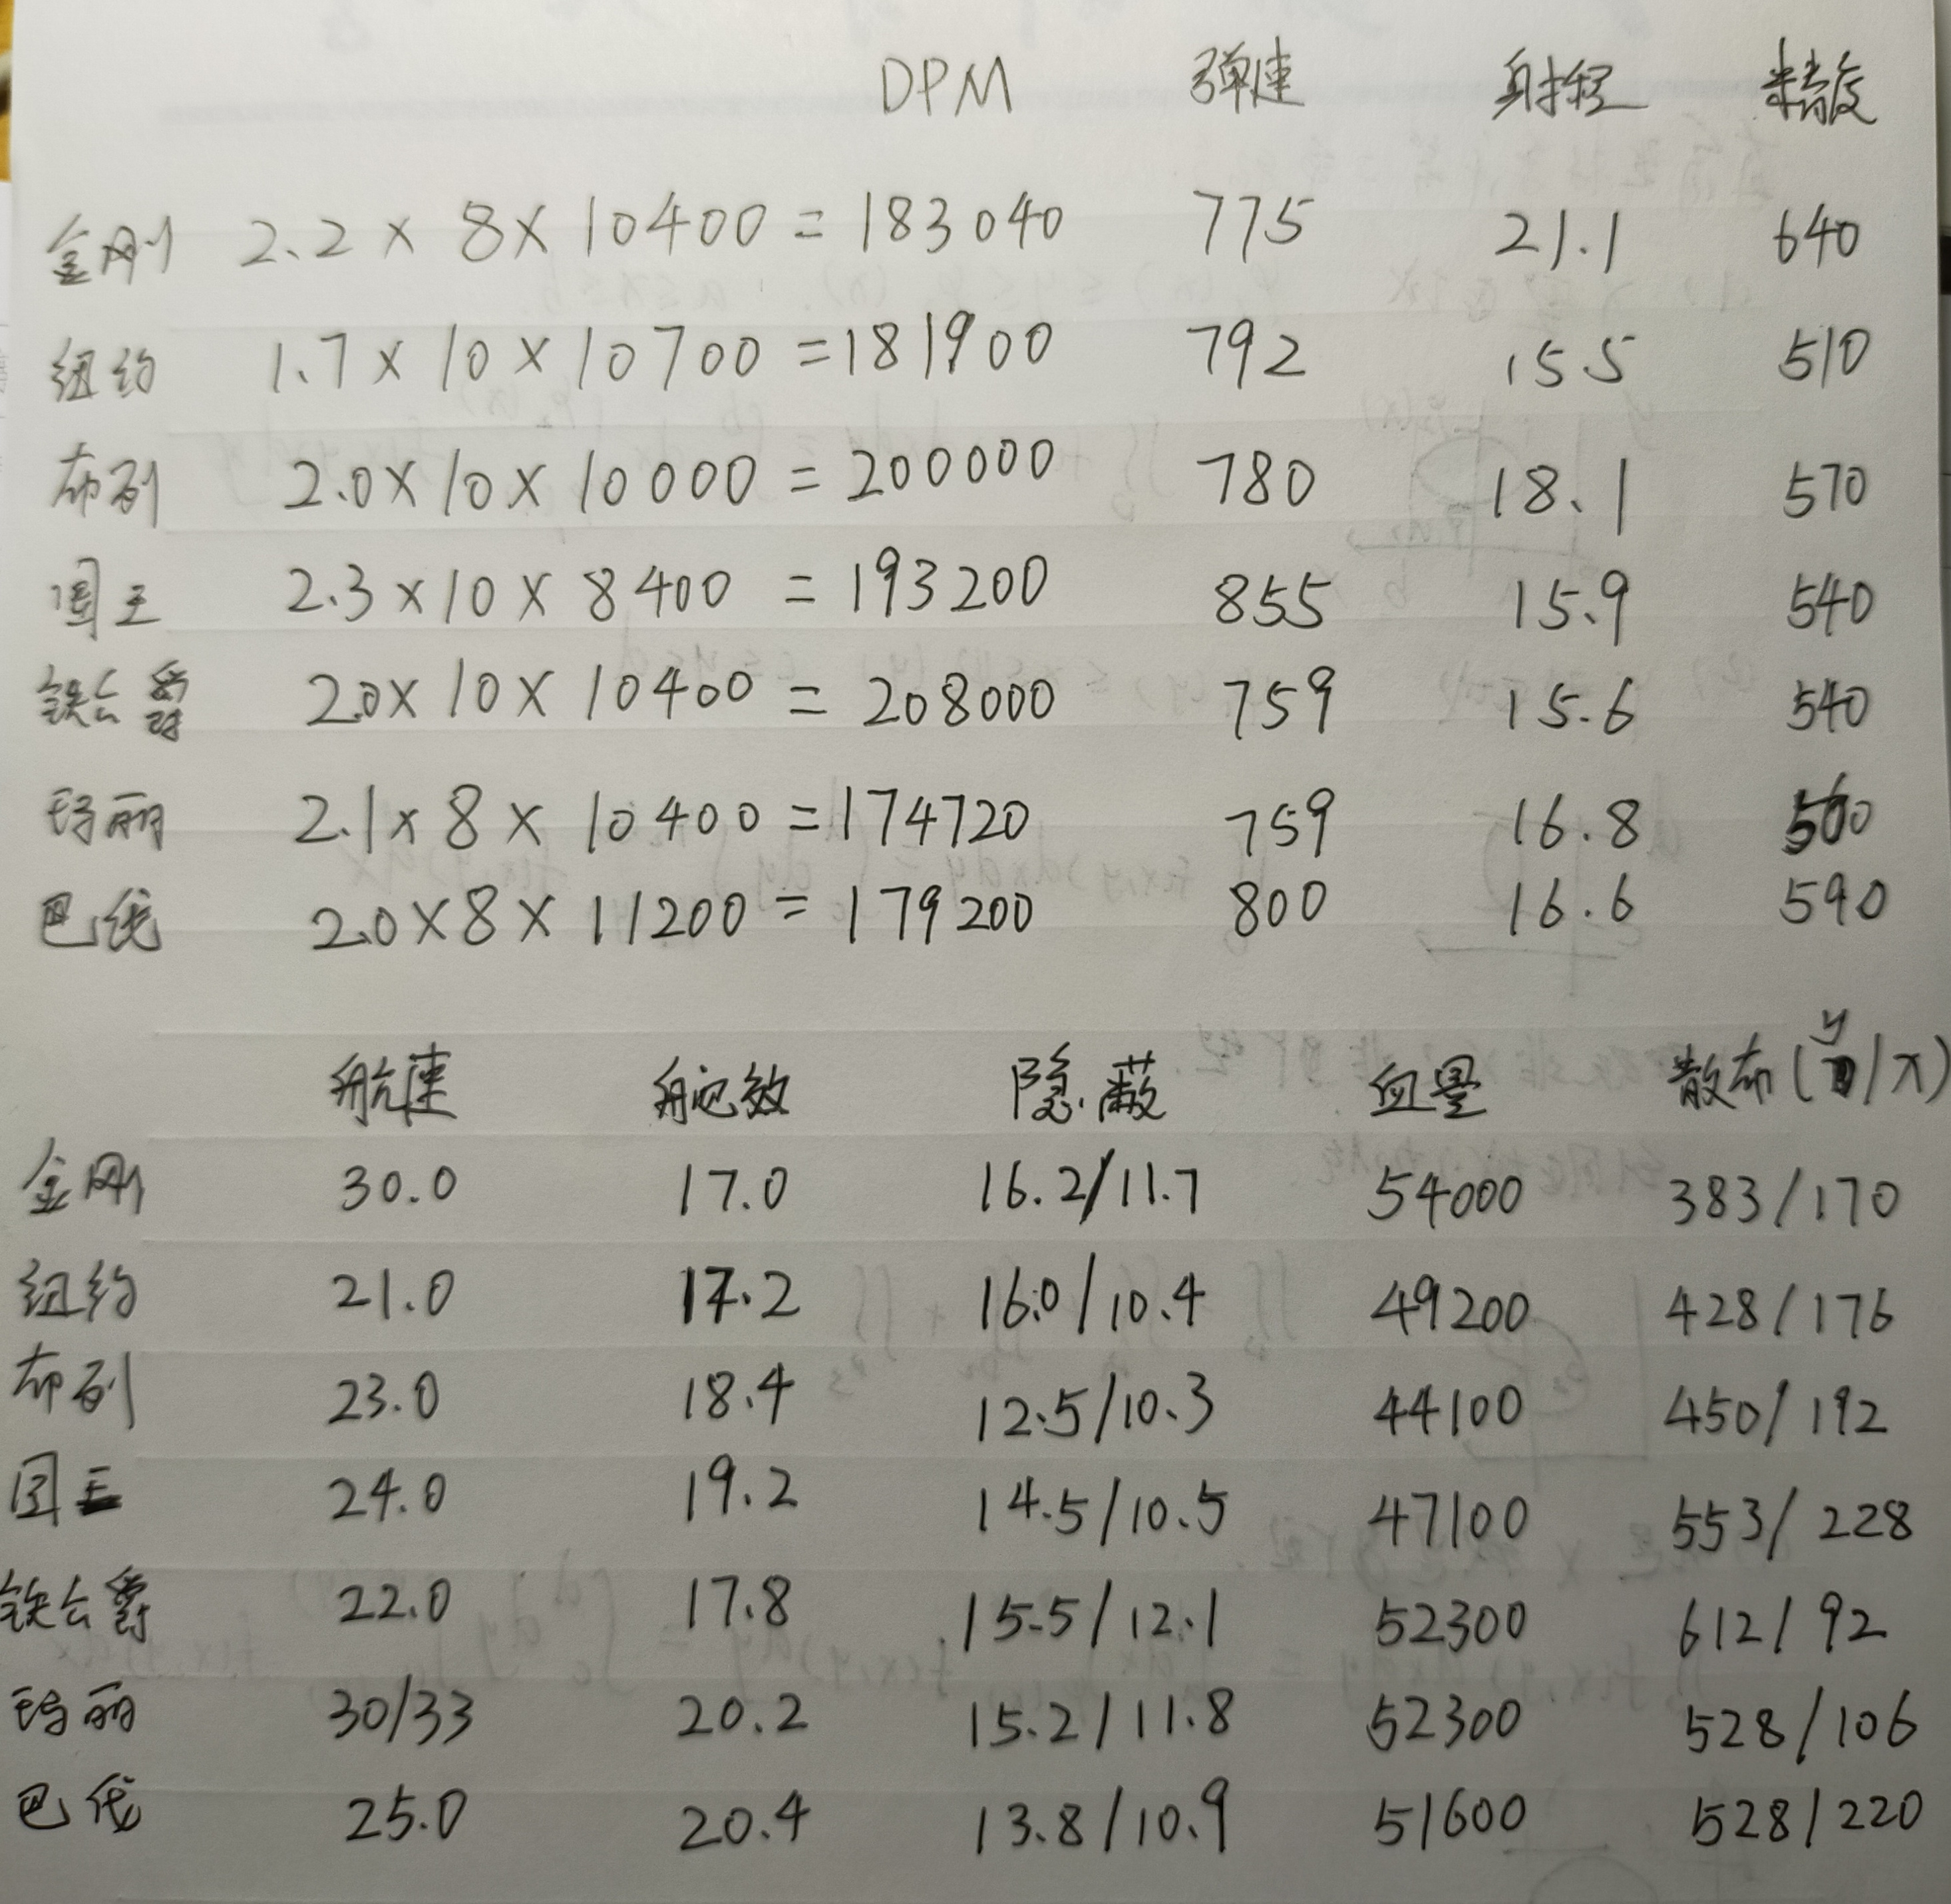 DPM 弹速 射程 精度
金刚 2.2 × 8 × 10400 = 183040 775 21.1 640
纽约 1.7 × 10 × 10700 = 181900 792 15.5 510
布列 2.0 × 10 × 10000 = 200000 780 18.1 570
国王 2.3 × 10 × 8400 = 193200 855 15.9 540
铁公爵 2.0 × 10 × 10400 = 208000 759 15.6 540
玛丽 2.1 × 8 × 10400 = 174720 759 16.8
巴伐 2.0 × 8 × 11200 = 179200 800 16.6 590
航速 舵效 隐蔽 血量 散布(y/x)
金刚 30.0 17.0 16.2/11.7 54000 383/170
纽约 21.0 17.2 16.0/10.4 49200 428/176
布列 23.0 18.4 12.5/10.3 44100 450/192
国王 24.0 19.2 14.5/10.5 47100 553/228
铁公爵 22.0 17.8 15.5/12.1 52300 612/92
玛丽 30/33 20.2 15.2/11.8 52300 528/106
巴伐 25.0 20.4 13.8/10.9 51600 528/220